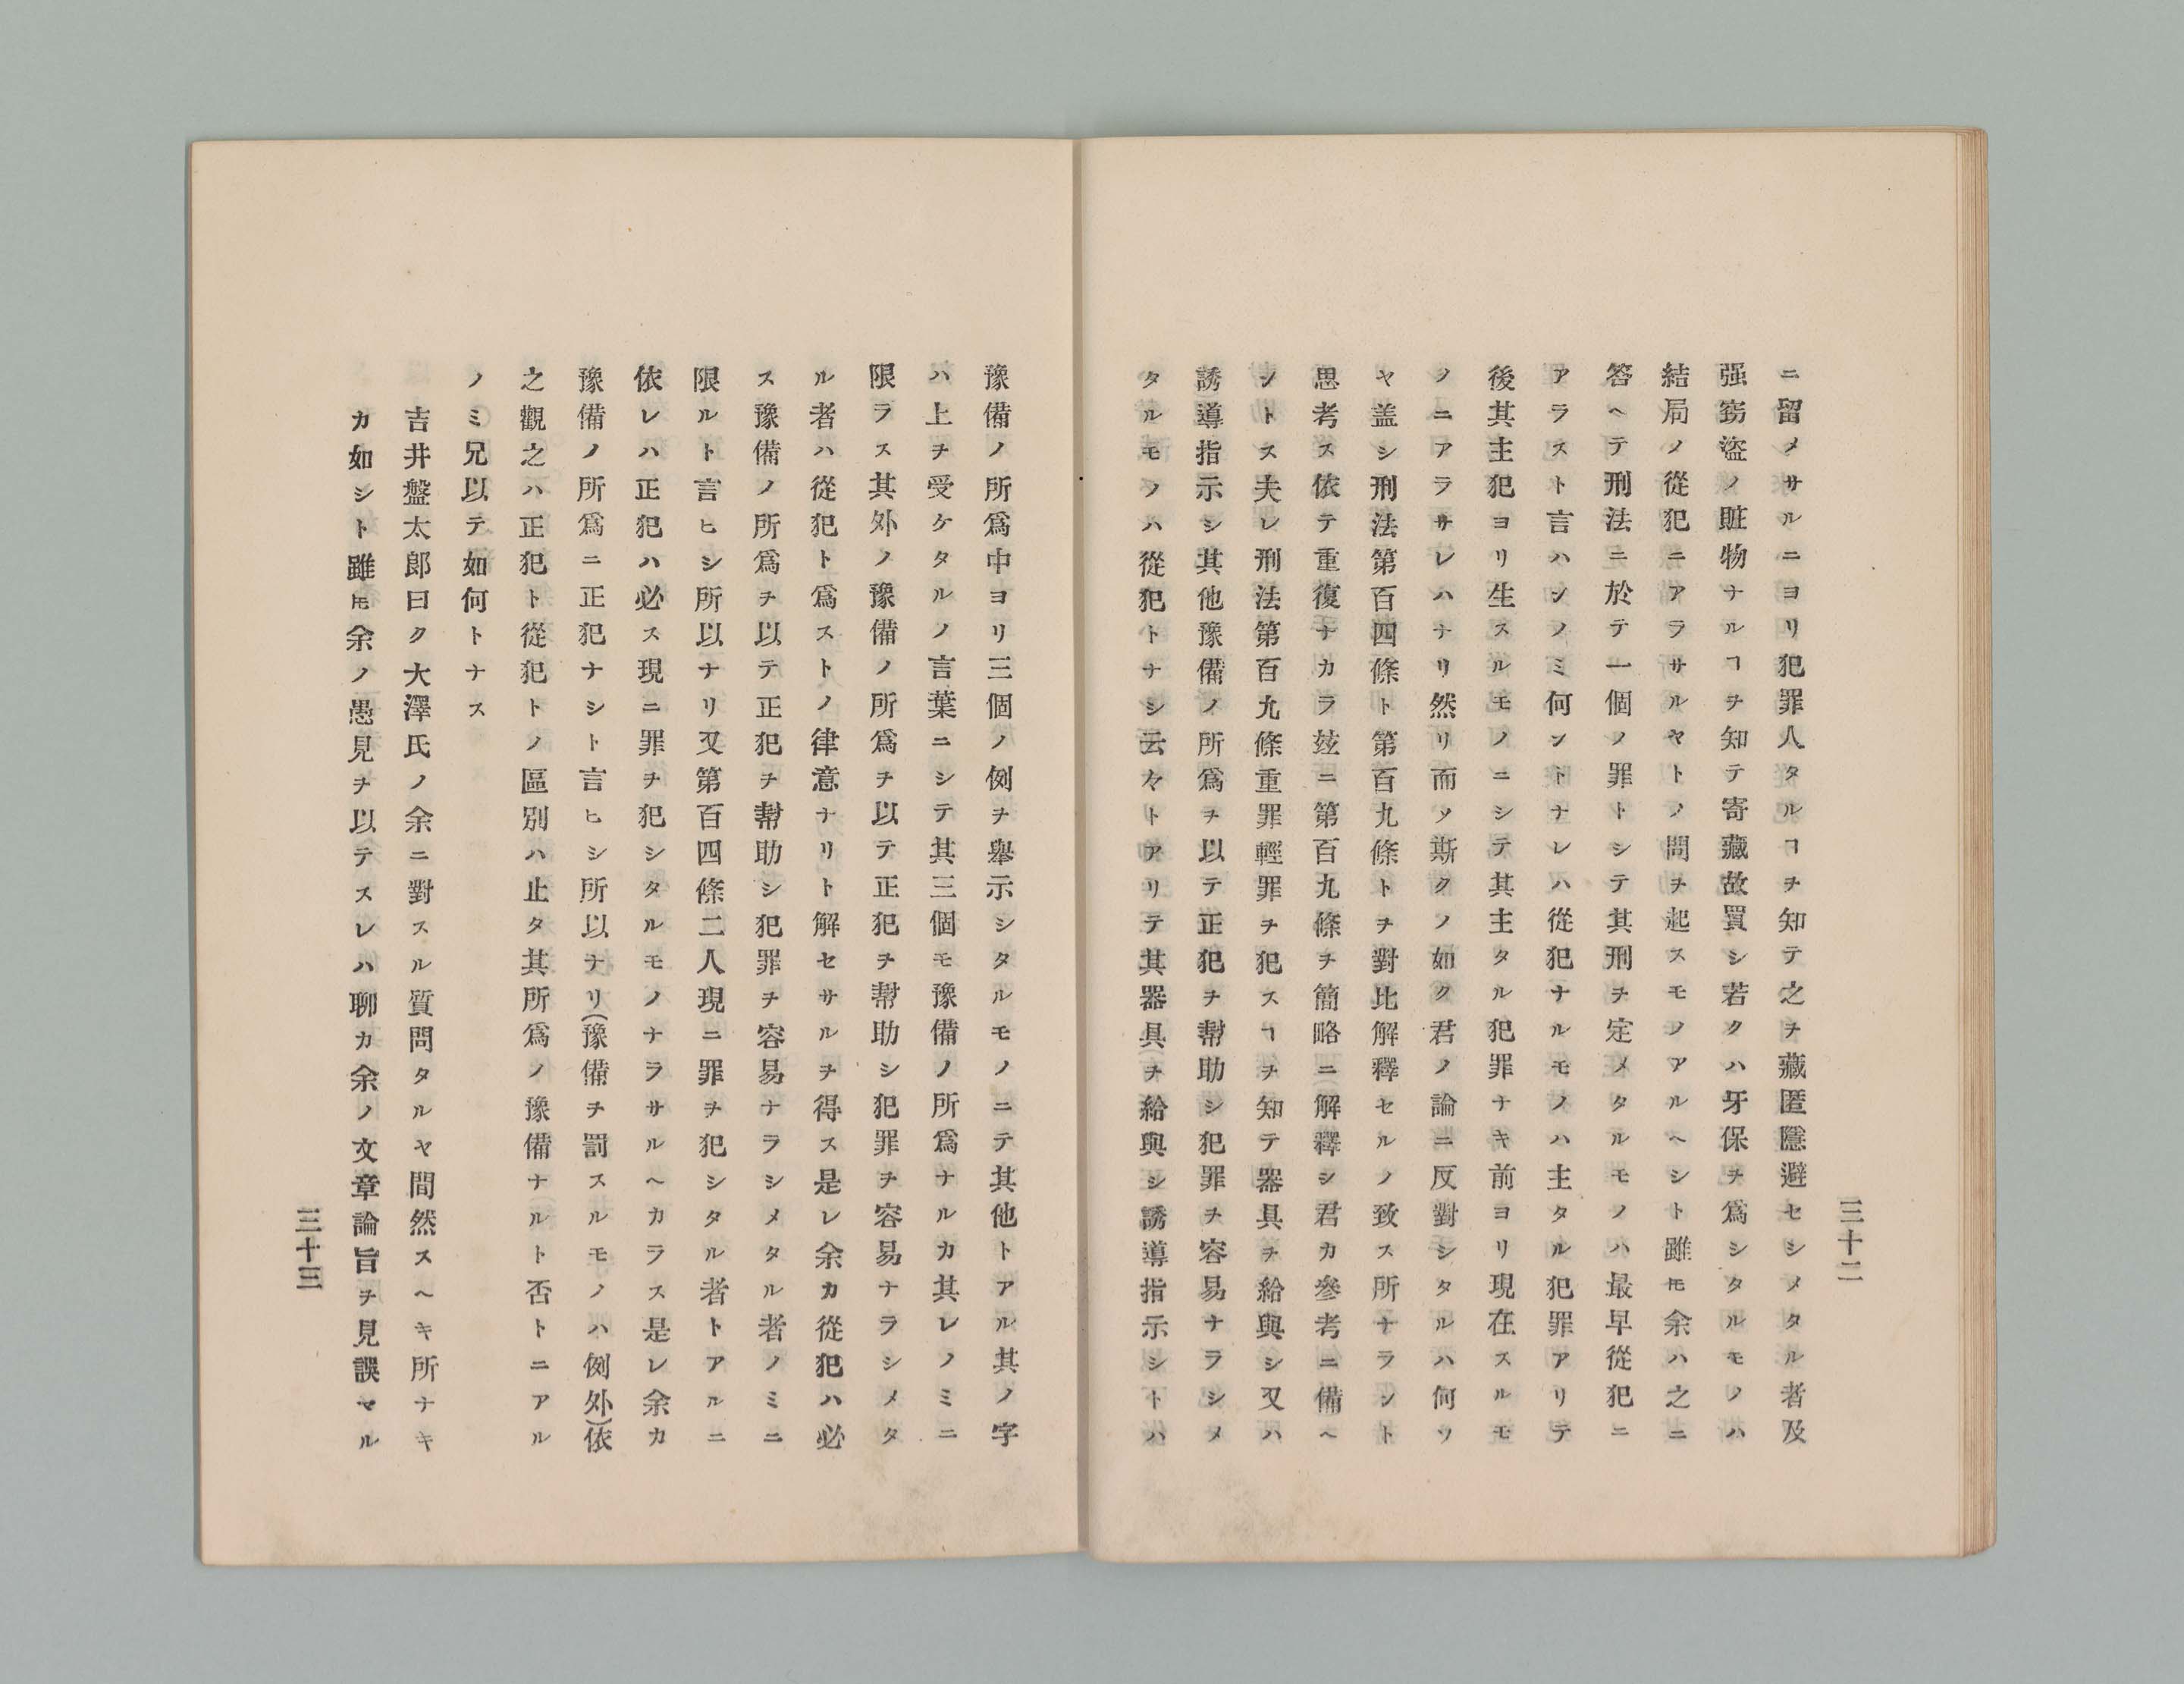 三十二
ニ留メサルニヨリ犯罪人タルヿヲ知テ之ヲ藏匿隱避セシメタル者及
强竊盜ノ贓物ナルヿヲ知テ寄藏故買シ若クハ牙保ヲ爲シタルモノハ
結局ノ從犯ニアラサルヤトノ問ヲ起スモノアルヘシト雖𪜈余ハ之ニ
答ヘテ刑法ニ於テ一個ノ罪トシテ其刑ヲ定メタルモノハ最早從犯ニ
アラスト言ハンノミ何ントナレハ從犯ナルモノハ主タル犯罪アリテ
後其主犯ヨリ生スルモノニシテ其主タル犯罪ナキ前ヨリ現在スルモ
ノニアラサレハナリ然リ而ソ斯クノ如ク君ノ論ニ反對シタルハ何ソ
ヤ盖シ刑法第百四條ト第百九條トヲ對比解釋セルノ致ス所ナラント
思考ス依テ重復ナカラ玆ニ第百九條ヲ簡略ニ解釋シ君カ參考ニ備ヘ
ントス夫レ刑法第百九條重罪輕罪ヲ犯スヿヲ知テ器具ヲ給與シ又ハ
誘導指示シ其他豫備ノ所爲ヲ以テ正犯ヲ幇助シ犯罪ヲ容易ナラシメ
タルモノハ從犯トナシ云々トアリテ其器具ヲ給與シ誘導指示シトハ
豫備ノ所爲中ヨリ三個ノ例ヲ擧示シタルモノニテ其他トアル其ノ字
ハ上ヲ受ケタルノ言葉ニシテ其三個モ豫備ノ所爲ナルカ其レノミニ
限ラス其外ノ豫備ノ所爲ヲ以テ正犯ヲ幇助シ犯罪ヲ容易ナラシメタ
ル者ハ從犯ト爲ストノ律意ナリト解セサルヲ得ス是レ余カ從犯ハ必
ス豫備ノ所爲ヲ以テ正犯ヲ幇助シ犯罪ヲ容易ナラシメタル者ノミニ
限ルト言ヒシ所以ナリ又第百四條二人現ニ罪ヲ犯シタル者トアルニ
依レハ正犯ハ必ス現ニ罪ヲ犯シタルモノナラサルヘカラス是レ余カ
豫備ノ所爲ニ正犯ナシト言ヒシ所以ナリ(豫備ヲ罰スルモノハ例外)依
之觀之ハ正犯ト從犯トノ區別ハ止タ其所爲ノ豫備ナルト否トニアル
ノミ兄以テ如何トナス
吉井盤太郎曰ク大澤氏ノ余ニ對スル質問タルヤ間然スヘキ所ナキ
カ如シト雖𪜈余ノ愚見ヲ以テスレハ聊カ余ノ文章論旨ヲ見誤マル
三十三